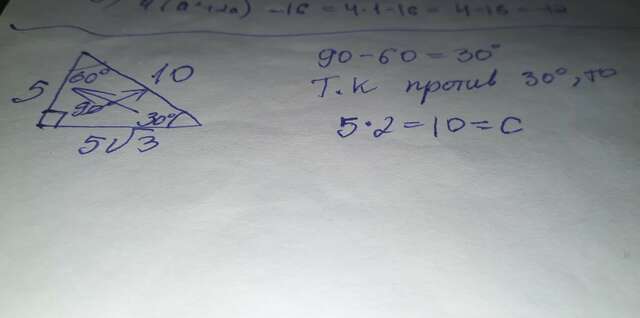 -16 = 4·1-16 = 4-16 = -12
60°
5
10
90°
30°
5√3
90-60=30°
Т.К против 30°, то
5·2=10=C